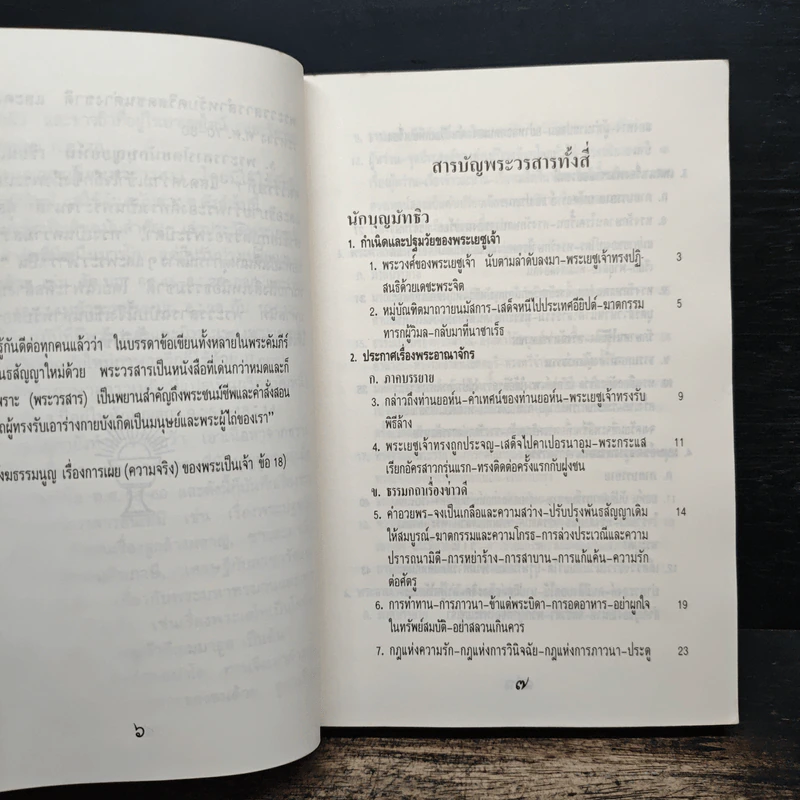 รู้กันดีต่อทุกคนแล้วว่า ในบรรดาข้อเขียนทั้งหลายในพระคัมภีร์
นธสัญญาใหม่ด้วย พระวรสารเป็นหนังสือที่เด่นกว่าหมดและก็
พราะ (พระวรสาร) เป็นพยานสำคัญถึงพระชนม์ชีพและคำสั่งสอน
ถผู้ทรงรับเอาร่างกายบังเกิดเป็นมนุษย์และพระผู้ไถ่ของเรา”
งฆธรรมนูญ เรื่องการเผย (ความจริง) ของพระเป็นเจ้า ข้อ 18)
๖
สารบัญพระวรสารทั้งสี่
นักบุญมัทธิว
1. กำเนิดและปฐมวัยของพระเยซูเจ้า
1. พระวงศ์ของพระเยซูเจ้า นับตามลำดับลงมา-พระเยซูเจ้าทรงปฏิ 3
สนธิด้วยเดชะพระจิต
2. หมู่บัณฑิตมาถวายนมัสการ-เสด็จหนีไปประเทศอียิปต์-ฆาตกรรม 5
ทารกผู้วิมล-กลับมาที่นาซาเร็ธ
2. ประกาศเรื่องพระอาณาจักร
ก. ภาคบรรยาย
3. กล่าวถึงท่านยอห์น-คำเทศน์ของท่านยอห์น-พระเยซูเจ้าทรงรับ 9
พิธีล้าง
4. พระเยซูเจ้าทรงถูกประจญ-เสด็จไปคาเปอรนาอุม-พระกระแส 11
เรียกอัครสาวกรุ่นแรก-ทรงติดต่อครั้งแรกกับฝูงชน
ข. ธรรมกถาเรื่องข่าวดี
5. คำอวยพร-จงเป็นเกลือและความสว่าง-ปรับปรุงพันธสัญญาเดิม 14
ให้สมบูรณ์-ฆาตกรรมและความโกรธ-การล่วงประเวณีและความ
ปรารถนามิดี-การหย่าร้าง-การสาบาน-การแก้แค้น-ความรัก
ต่อศัตรู
6. การทำทาน-การภาวนา-ข้าแต่พระบิดา-การอดอาหาร-อย่าผูกใจ 19
ในทรัพย์สมบัติ-อย่าสลวนเกินควร
7. กฎแห่งความรัก-กฎแห่งการวินิจฉัย-กฎแห่งการภาวนา-ประตู 23
๗